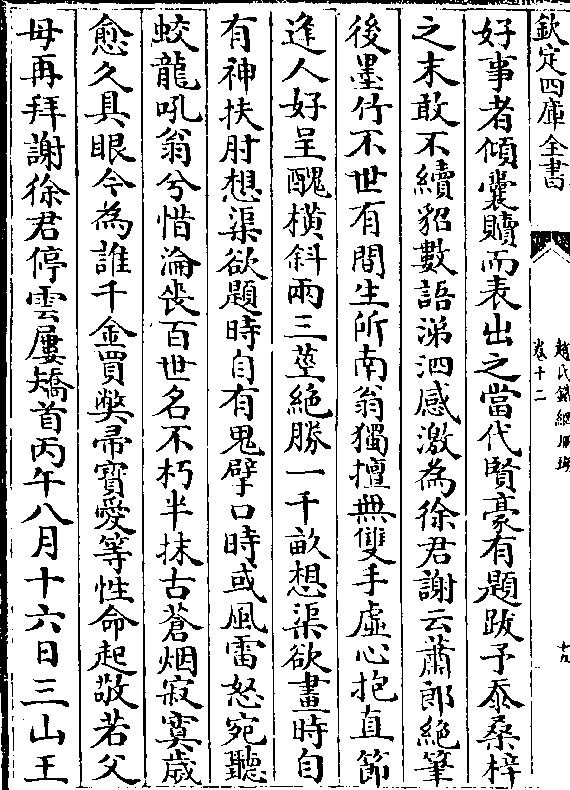 欽定四庫全書
趙氏鐵網珊瑚
卷十二
十九
好事者傾囊贖而表出之當代賢豪有題跋予忝桑梓
之末敢不續貂數語涕泗感激為徐君謝云蕭郎絶筆
後墨竹不世有間生所南翁獨擅無雙手虛心抱直節
逢人好呈醜横斜兩三莖絶勝一千畝想渠欲畫時自
有神扶肘想渠欲題時自有鬼擘口時或風雷怒宛聽
蛟龍吼翁兮惜淪喪百世名不朽半抹古蒼烟寂寞歲
愈久具眼今為誰千金買弊帚寳愛等性命起敬若父
母再拜謝徐君停雲屢矯首丙午八月十六日三山王